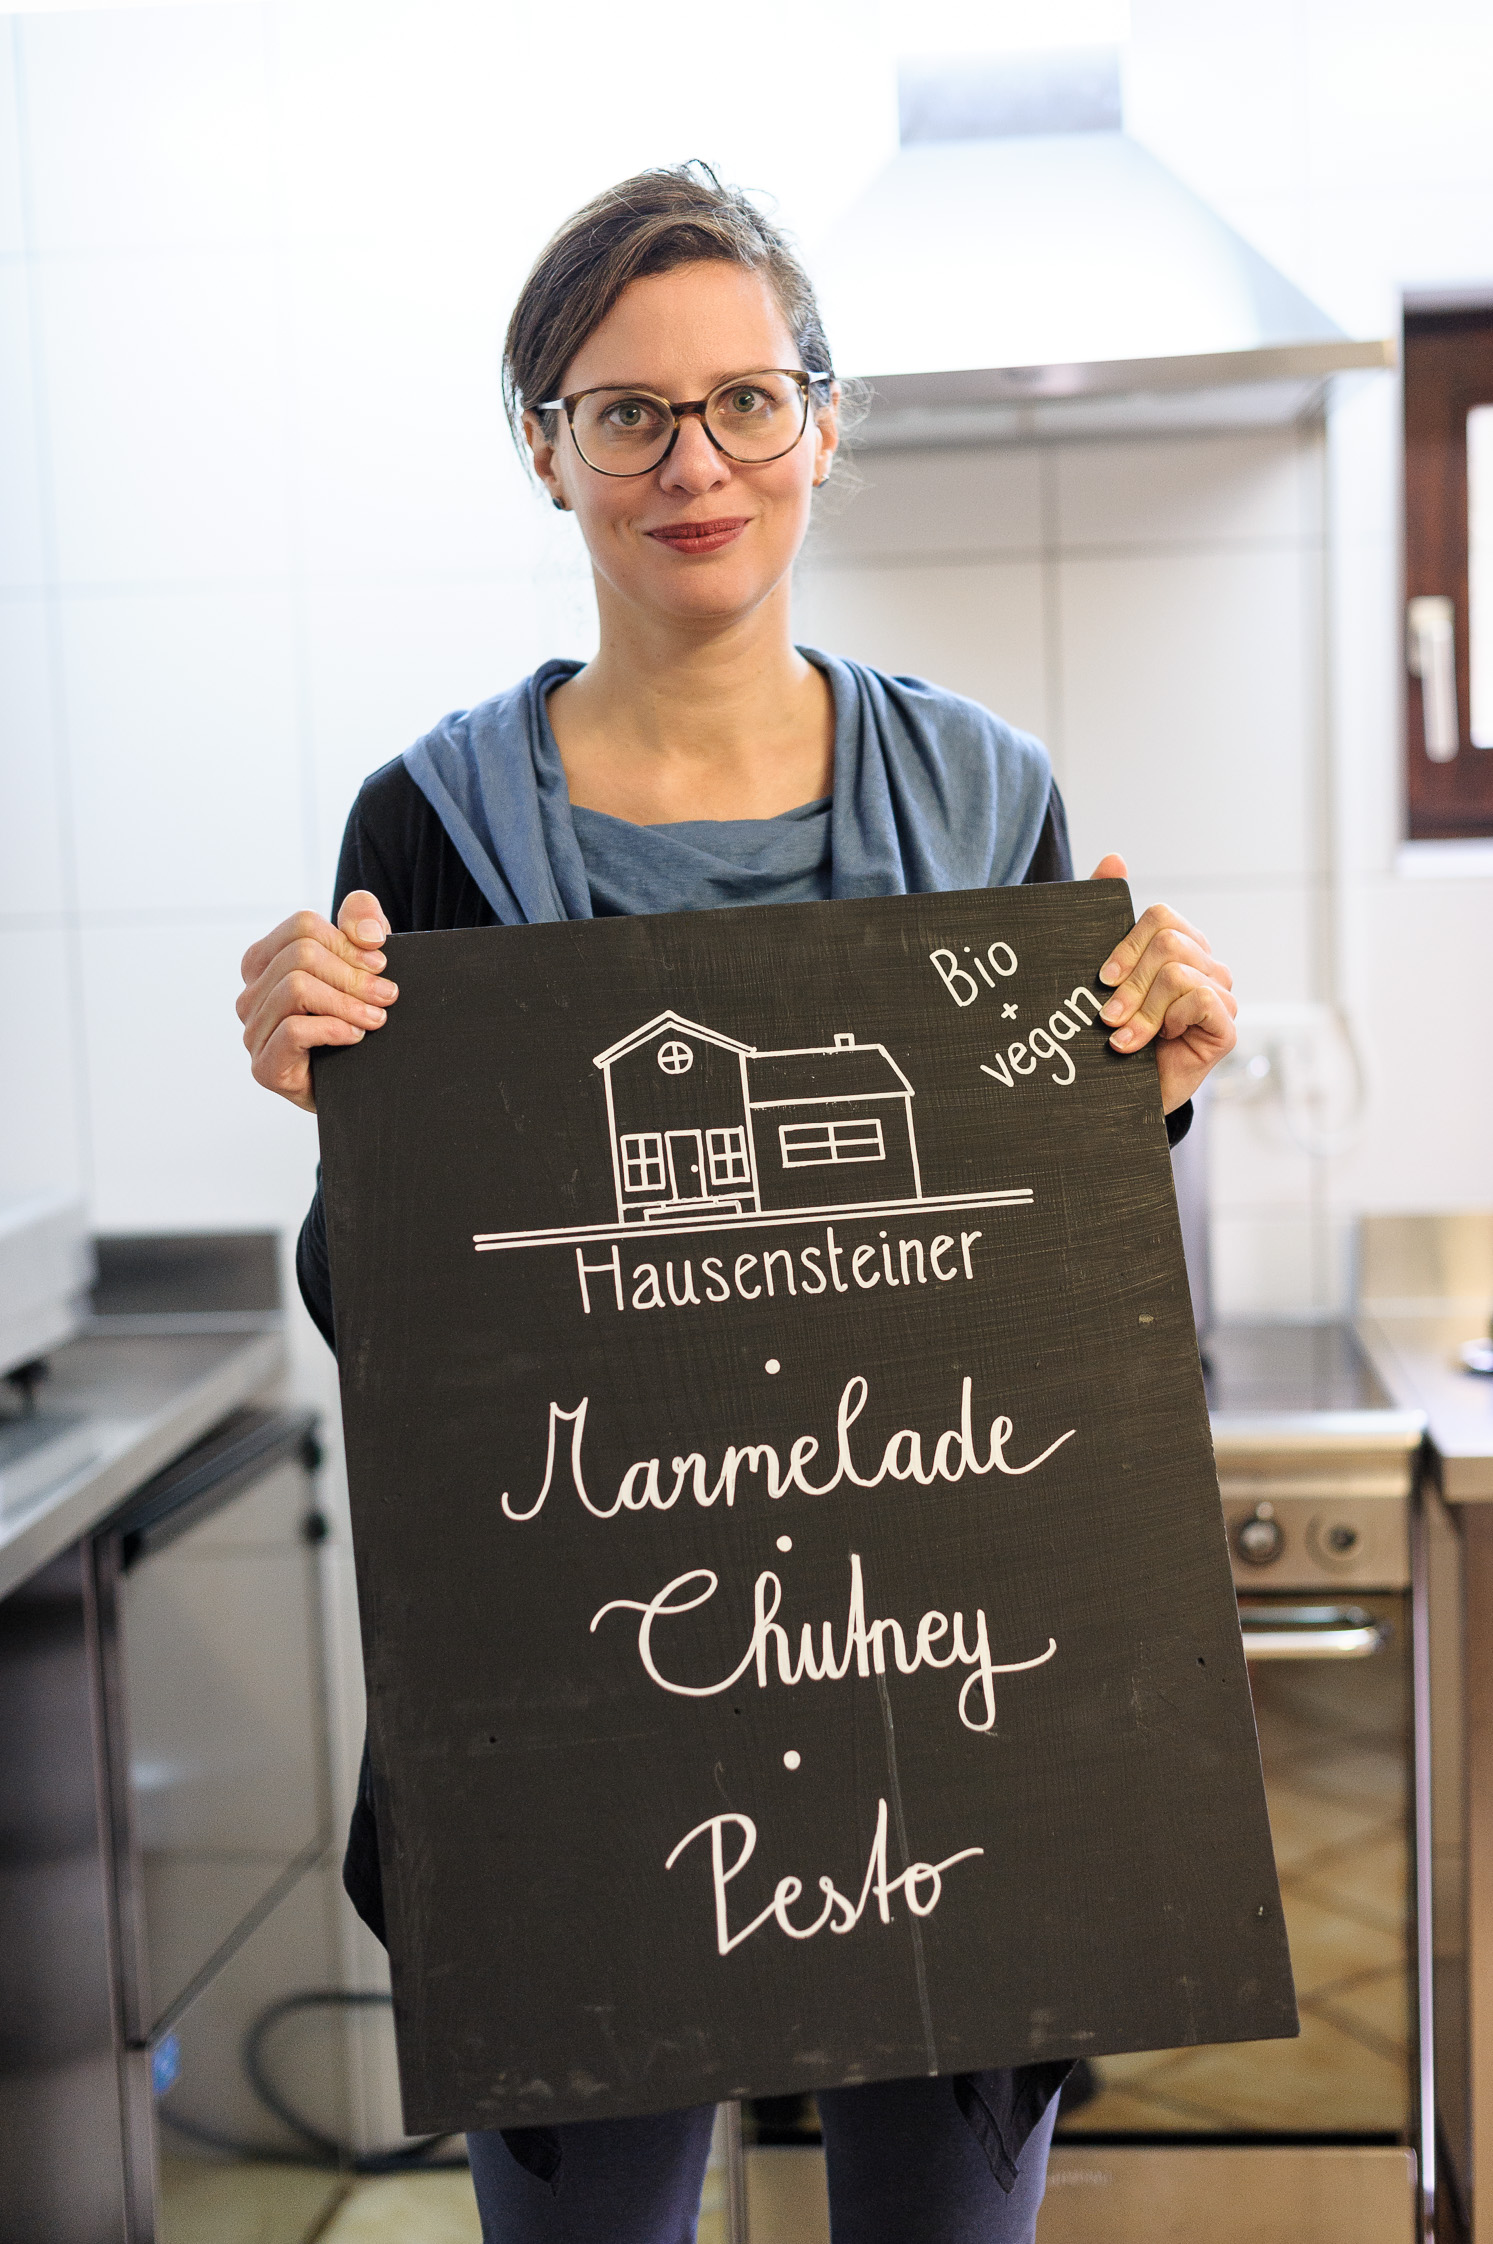 Bio
+
vegan
Hausensteiner
Marmelade
Chutney
Pesto